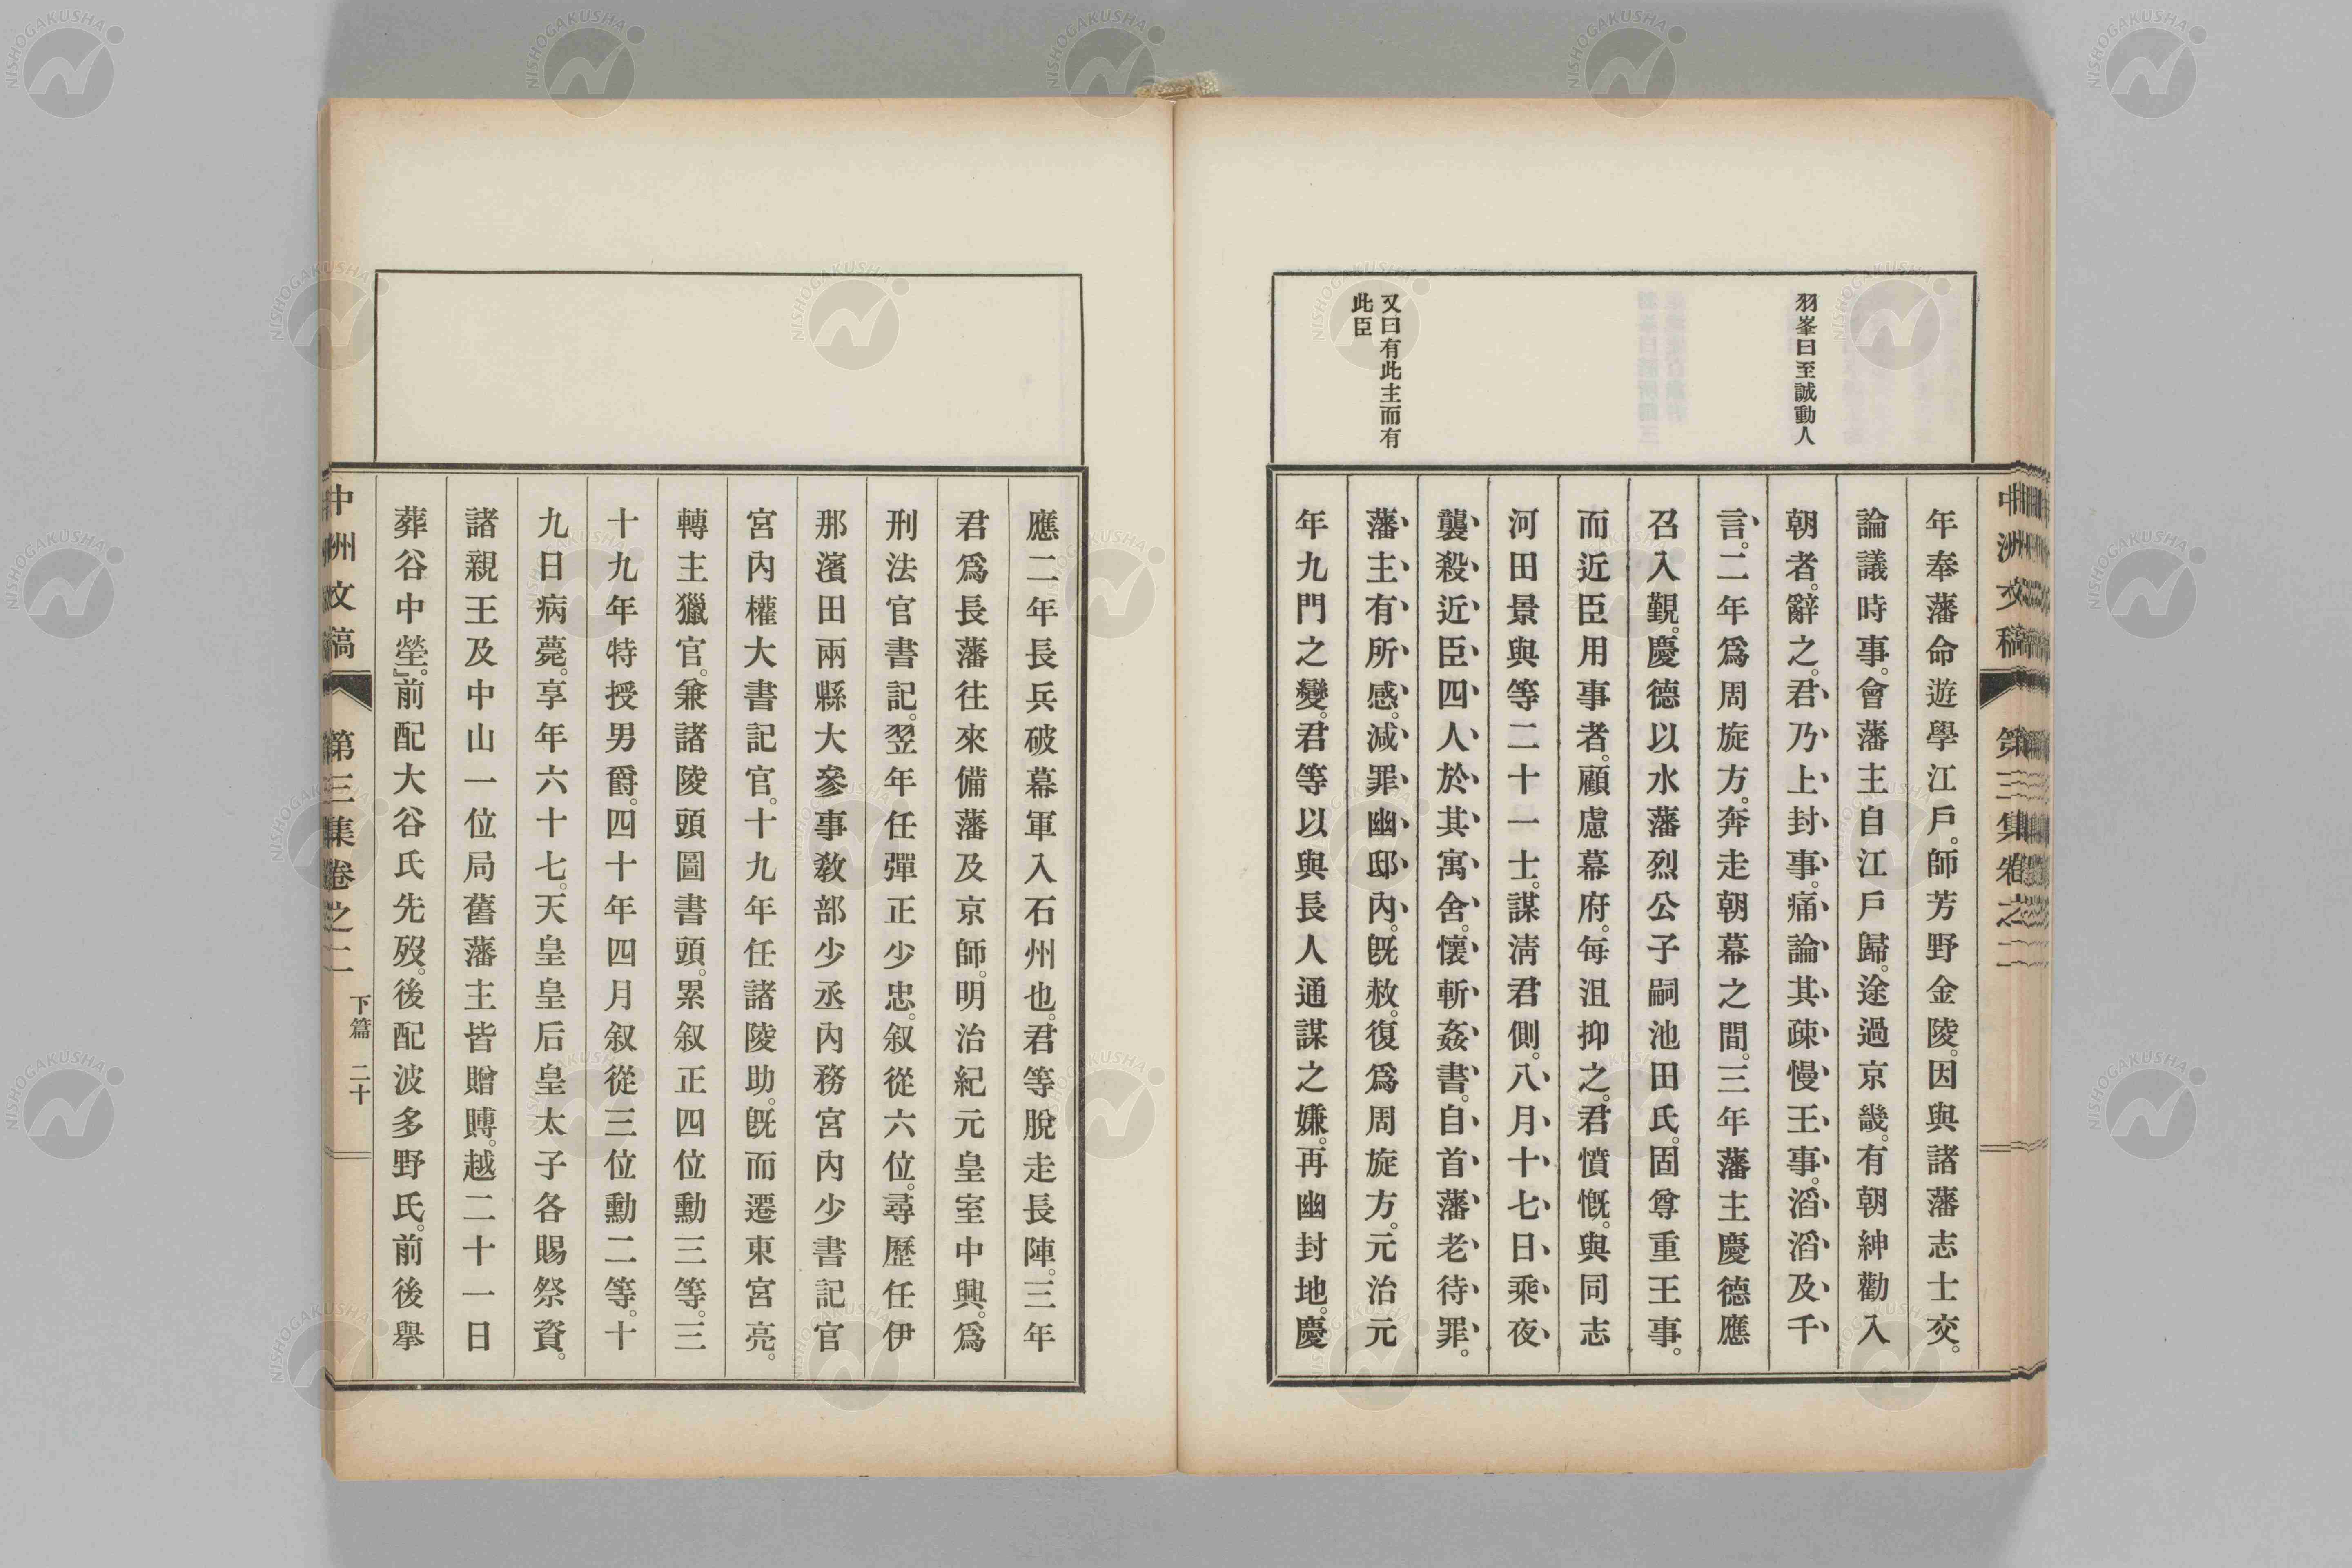 羽峯曰至誠動人
又曰有此主而有
此臣
中洲文稿 第三集卷之二
年奉藩命遊學江戶。師芳野金陵。因與諸藩志士交。
論議時事。會藩主自江戶歸。途過京畿。有朝紳勸入
朝者。辭之。君乃上封事。痛論其疎慢王事。滔滔及千
言。二年爲周旋方。奔走朝幕之間。三年藩主慶德應
召入覲。慶德以水藩烈公子嗣池田氏。固尊重王事。
而近臣用事者。顧慮幕府。每沮抑之。君憤慨。與同志
河田景與等二十一士。謀淸君側。八月十七日。乘夜
襲殺近臣四人於其寓舍。懷斬姦書。自首藩老待罪。
藩主有所感。減罪幽邸內。旣赦。復爲周旋方。元治元
年九門之變。君等以與長人通謀之嫌。再幽封地。慶
應二年長兵破幕軍入石州也。君等脫走長陣。三年
君爲長藩往來備藩及京師。明治紀元皇室中興。爲
刑法官書記。翌年任彈正少忠。叙從六位。尋歷任伊
那濱田兩縣大參事敎部少丞內務宮內少書記官
宮內權大書記官。十九年任諸陵助。旣而遷東宮亮。
轉主獵官。兼諸陵頭圖書頭。累叙正四位勳三等。三
十九年特授男爵。四十年四月叙從三位勳二等。十
九日病薨。享年六十七。天皇皇后皇太子各賜祭資。
諸親王及中山一位局舊藩主皆贈賻。越二十一日
葬谷中塋。』前配大谷氏先歿。後配波多野氏。前後擧
中洲文稿 第三集卷之二 下篇 二十